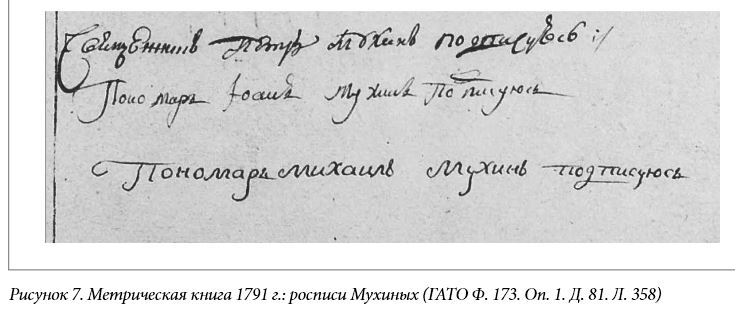 Священникъ Петръ Мухинъ подписуюсь :/
Пономарь Іоаннъ Мухинъ подписуюсь
Пономарь Михаилъ Мухинъ подписуюсь
Рисунок 7. Метрическая книга 1791 г.: росписи Мухиных (ГАТО Ф. 173. Оп. 1. Д. 81. Л. 358)